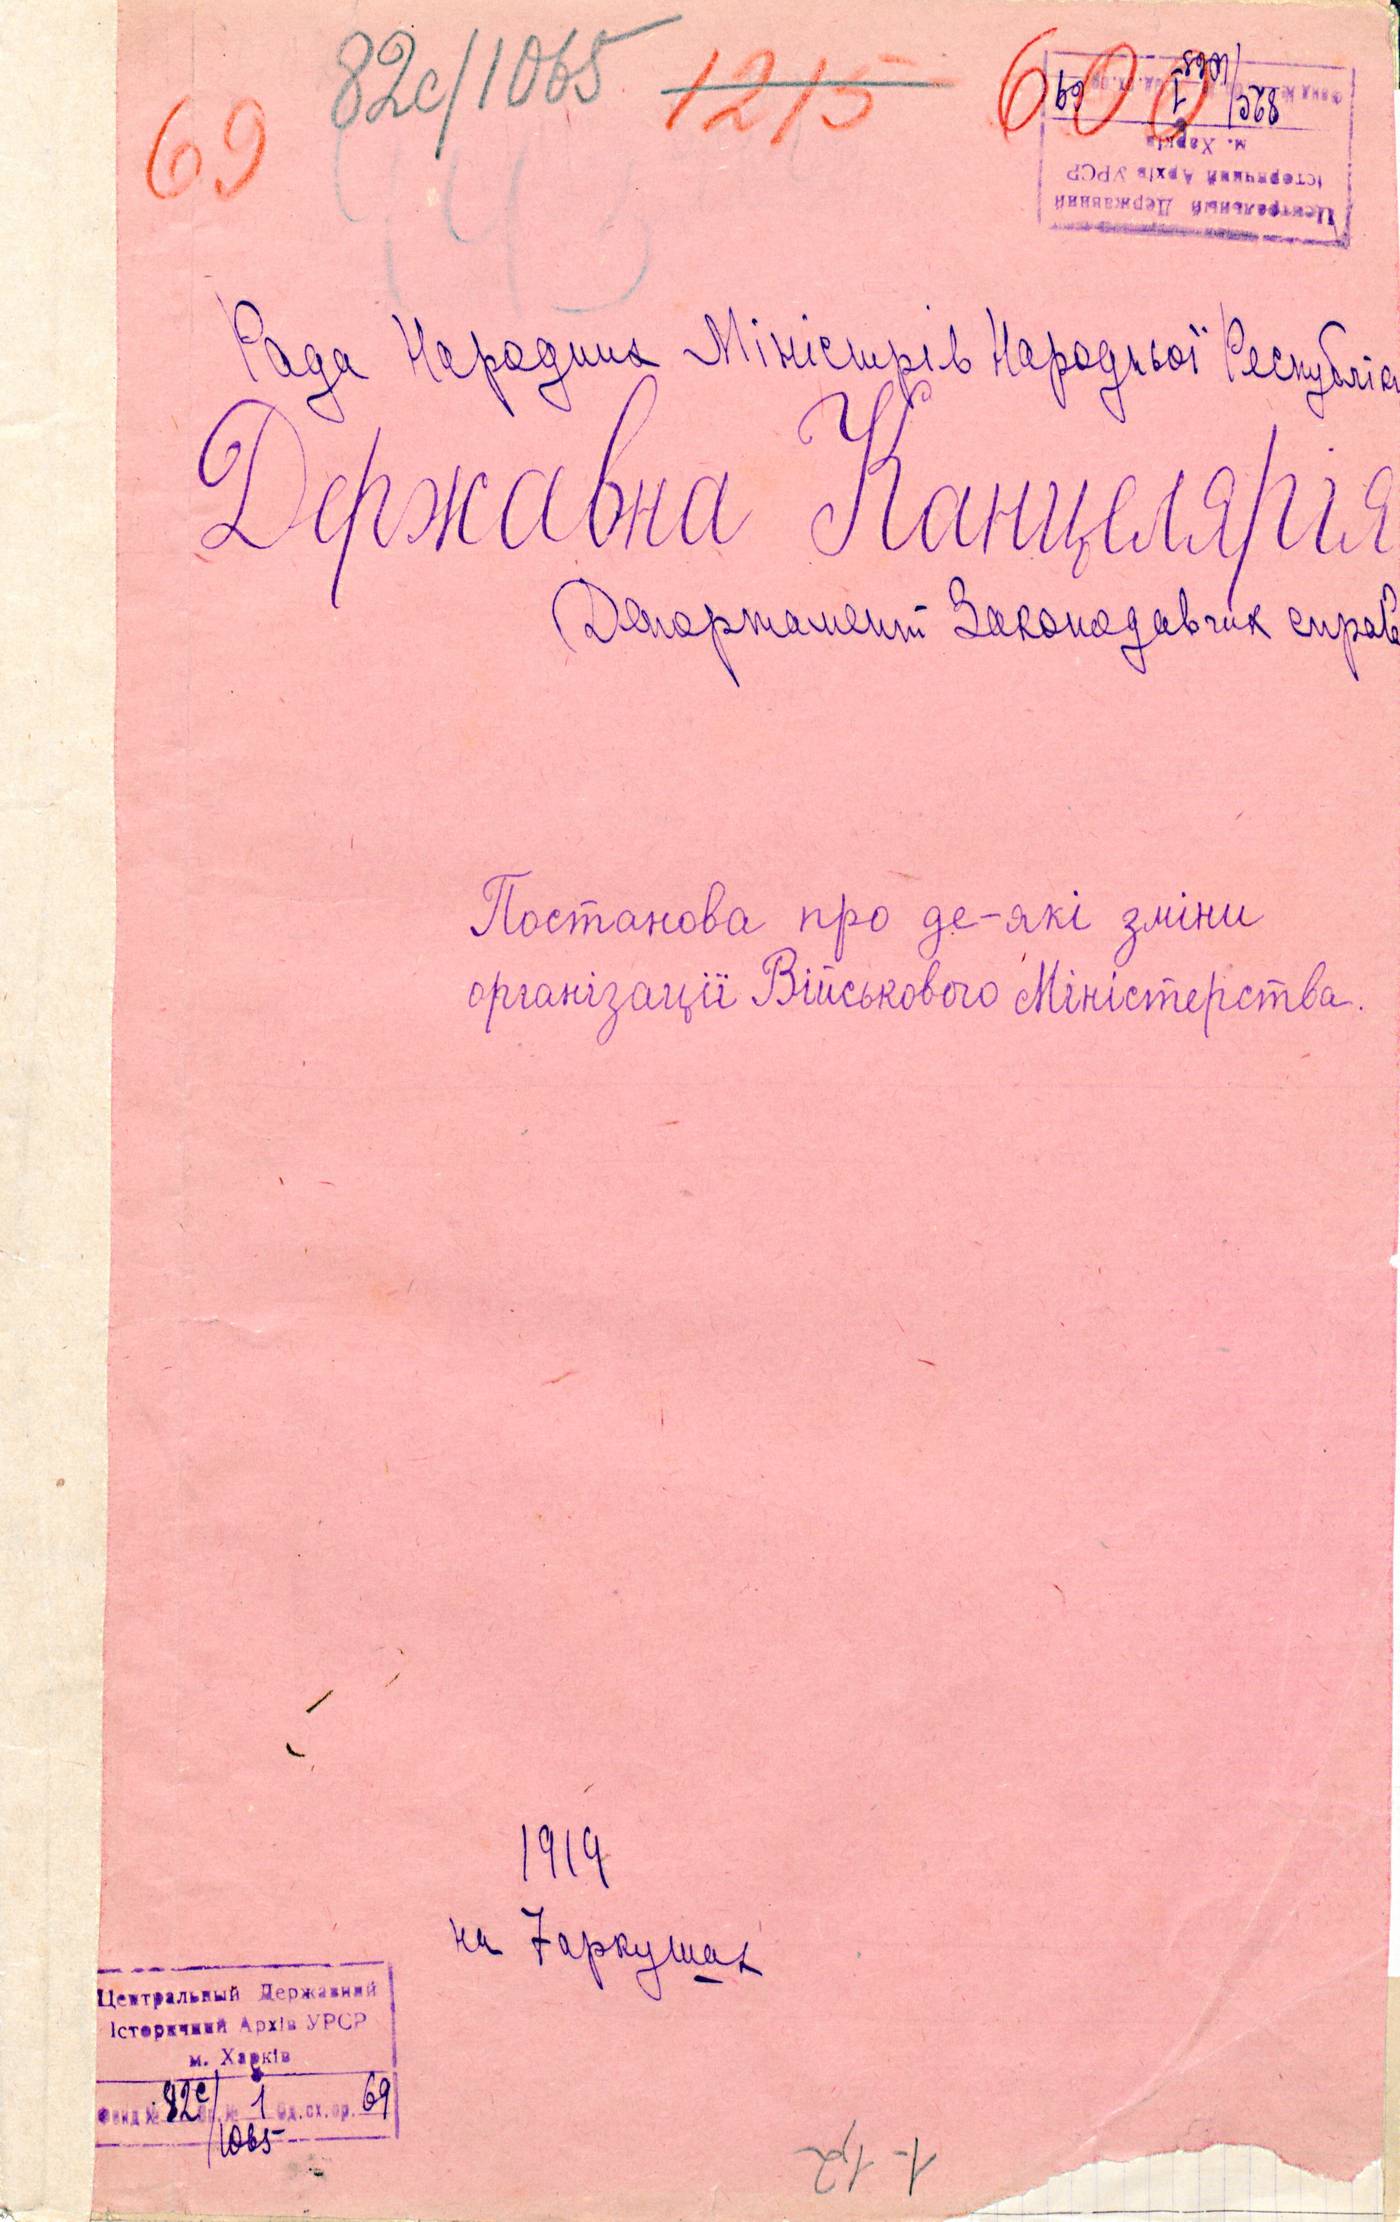 82с/1065
1215
600
69
82с/1065 1 69
Центральный Державний
Історичний Архів УРСР
м. Харків
Фонд № Оп. № Од. сх. ор.
Рада Народних Міністрів Народньої Республіки
Державна Канцелярія
Департамент Законодавчих справ
Постанова про де-які зміни
організації Військового Міністерства.
1919
на 7 аркушах
Центральный Державний
Історичний Архів УРСР
м. Харків
Фонд № 82с/1065 Оп. № 1 Од. сх. ор. 69